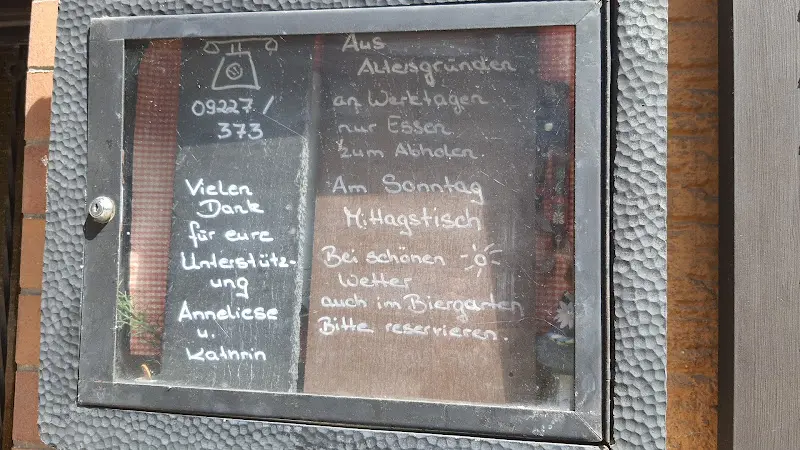 09227/
373
Vielen
Dank
für eure
Unterstütz-
ung
Anneliese
u.
Kathrin
Aus
Altersgründen
an Werktagen
nur Essen
zum Abholen.
Am Sonntag
Mittagstisch
Bei schönen
Wetter
auch im Biergarten
Bitte reservieren.